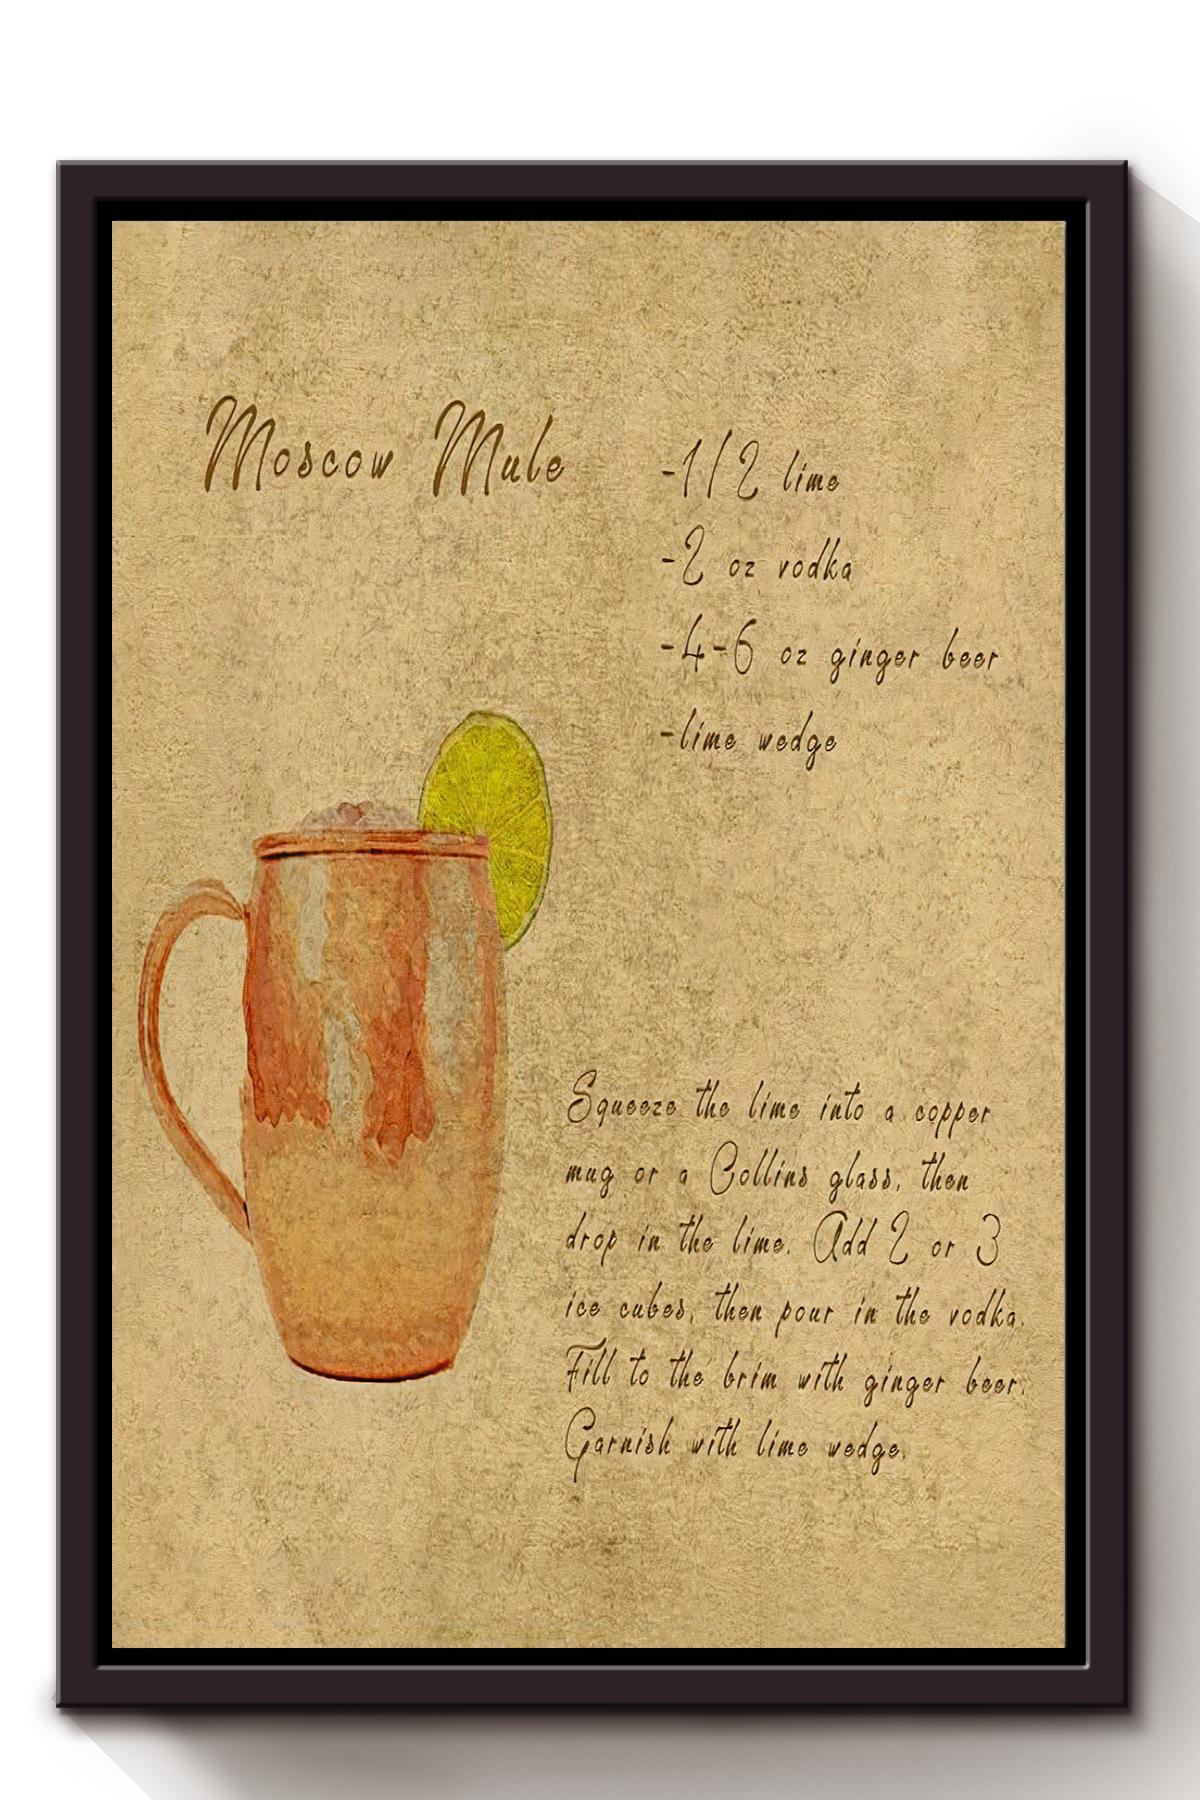 Moscow Mule
-1/2 lime
-2 oz vodka
-4-6 oz ginger beer
-lime wedge
Squeeze the lime into a copper
mug or a Collins glass, then
drop in the lime. Add 2 or 3
ice cubes, then pour in the vodka.
Fill to the brim with ginger beer.
Garnish with lime wedge.